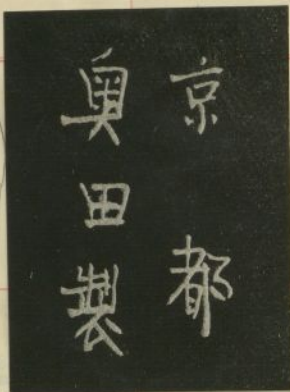 京都
奥田製